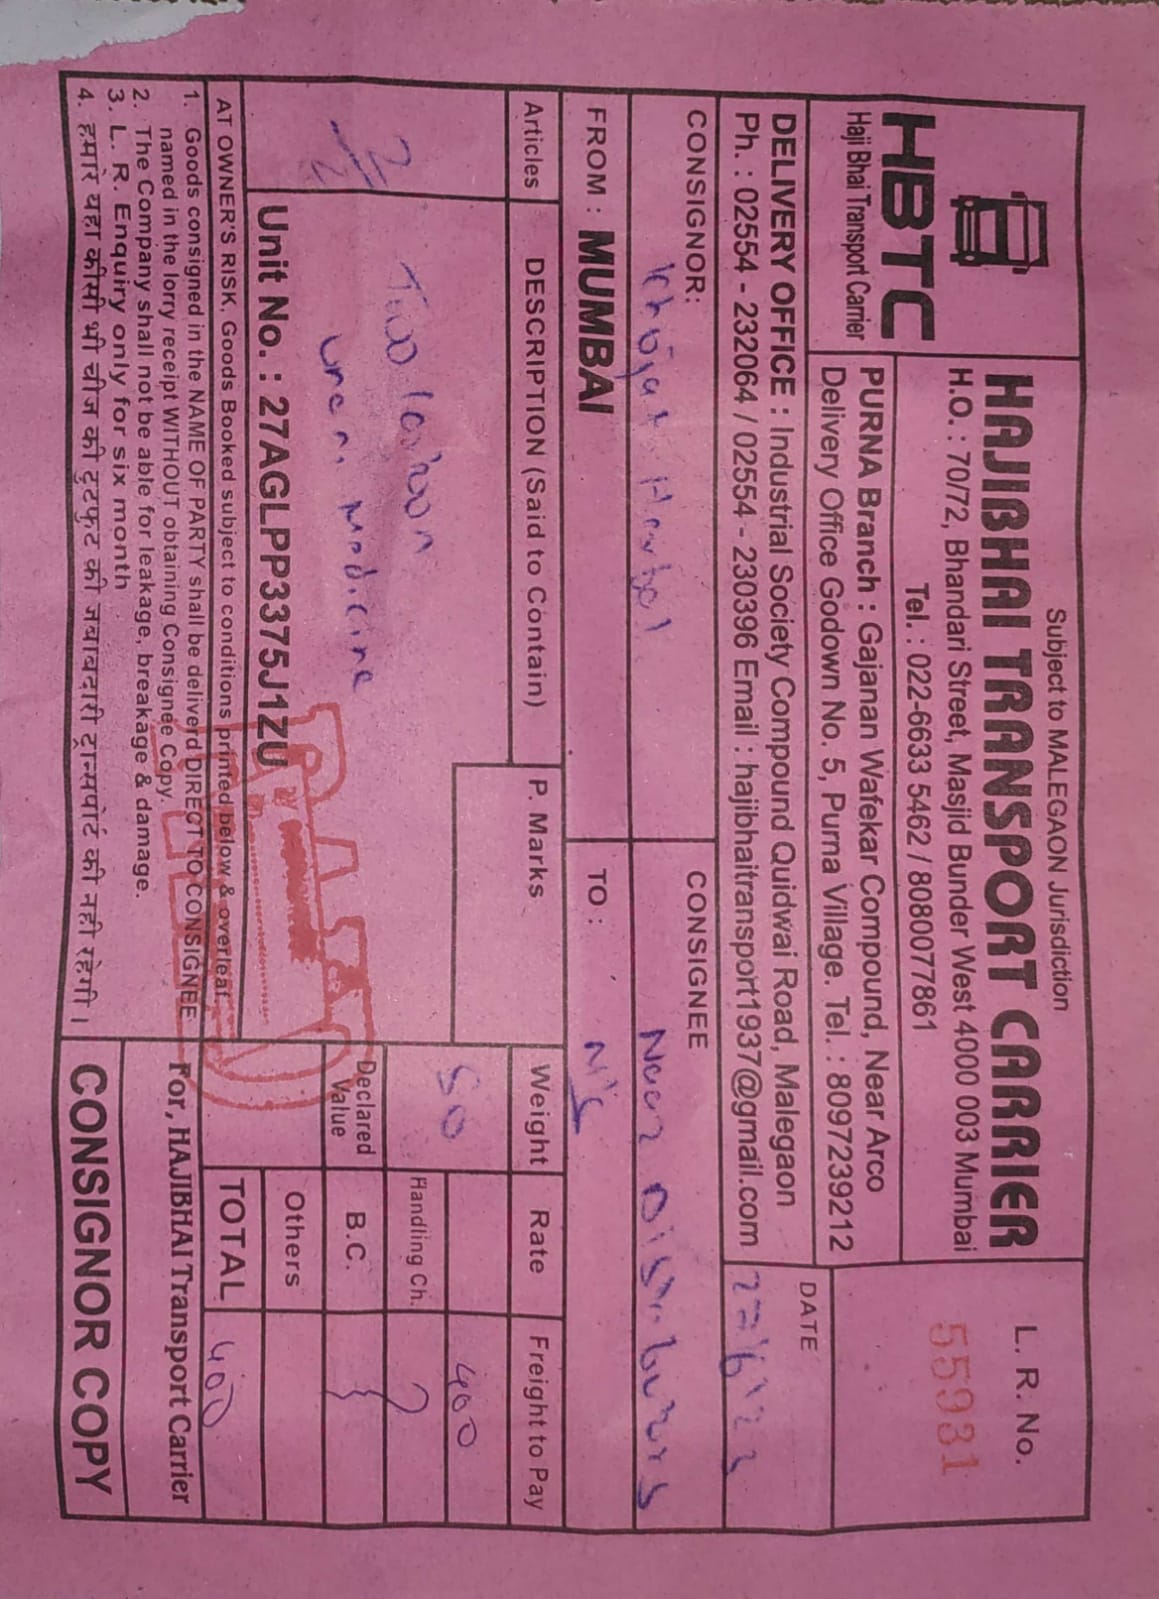 Subject to MALEGAON Jurisdiction
HAJIBHAI TRANSPORT CARRIER
H.O. : 70/72, Bhandari Street, Masjid Bunder West 4000 003 Mumbai
Tel. : 022-6633 5462 / 8080077861
HBTC
Haji Bhai Transport Carrier
PURNA Branch : Gajanan Wafekar Compound, Near Arco
Delivery Office Godown No. 5, Purna Village. Tel. : 8097239212
L. R. No.
55931
DELIVERY OFFICE : Industrial Society Compound Quidwai Road, Malegaon
Ph. : 02554 - 232064 / 02554 - 230396 Email : hajibhaitransport1937@gmail.com
DATE
CONSIGNOR:
Herbal
CONSIGNEE
Noor
FROM : MUMBAI
TO :
Articles
DESCRIPTION (Said to Contain)
P. Marks
Weight
Rate
Freight to Pay
2
Two
Medicine
50
400
Handling Ch.
Declared Value
B.C.
Others
TOTAL
400
Unit No. : 27AGLPP3375J1ZU
AT OWNER'S RISK. Goods Booked subject to conditions printed below & overleaf.
1. Goods consigned in the NAME OF PARTY shall be deliverd DIRECT TO CONSIGNEE
named in the lorry receipt WITHOUT obtaining Consignee Copy.
2. The Company shall not be able for leakage, breakage & damage.
3. L. R. Enquiry only for six month
4. हमारे यहा कीसी भी चीज की टुटफुट की जबाबदारी ट्रान्सपोर्ट की नही रहेगी ।
For, HAJIBHAI Transport Carrier
CONSIGNOR COPY